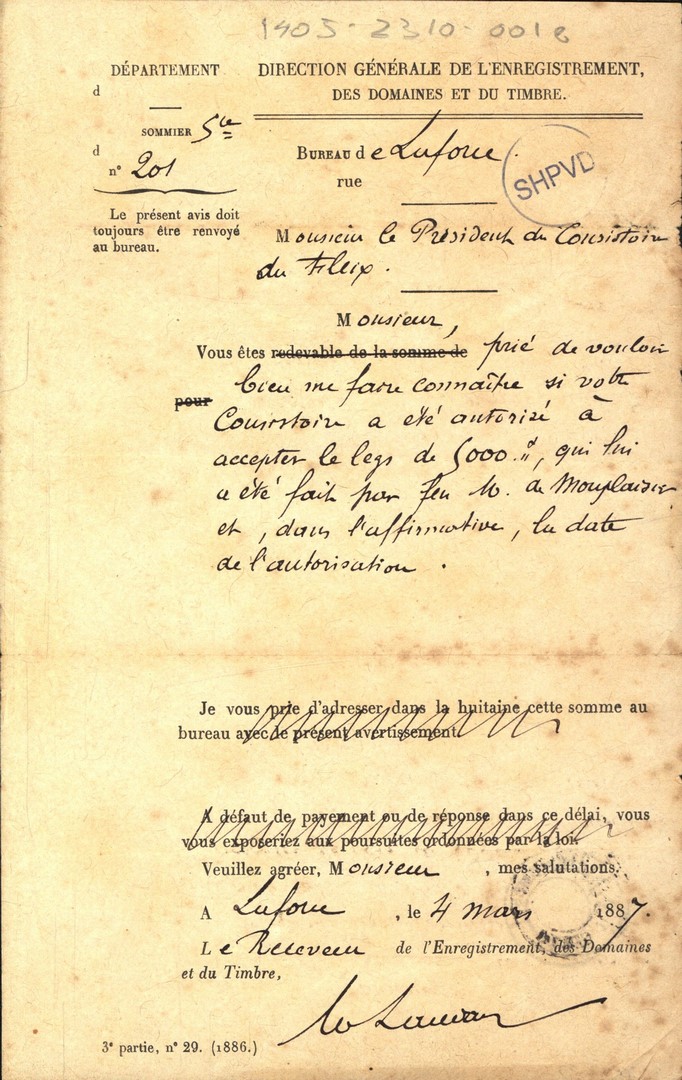 1405-2310-0018
DÉPARTEMENT
d
SOMMIER 5te
d
n° 201
Le présent avis doit
toujours être renvoyé
au bureau.
DIRECTION GÉNÉRALE DE L'ENREGISTREMENT,
DES DOMAINES ET DU TIMBRE.
BUREAU de Laforce.
rue
SHPVD
Monsieur le Président du Consistoire
du Fleix.
Monsieur,
Vous êtes redevable de la somme de prié de vouloir
pour bien me faire connaître si votre
Consistoire a été autorisé à
accepter le legs de 5000.", qui lui
a été fait par feu M. de Monplaisir
et, dans l'affirmative, la date
de l'autorisation.
Je vous prie d'adresser dans la huitaine cette somme au
bureau avec le présent avertissement.
A défaut de payement ou de réponse dans ce délai, vous
vous exposeriez aux poursuites ordonnées par la loi.
Veuillez agréer, Monsieur, mes salutations.
A Laforce, le 4 mars 1887.
Le Receveur de l'Enregistrement, des Domaines
et du Timbre,
3e partie, n° 29. (1886.)